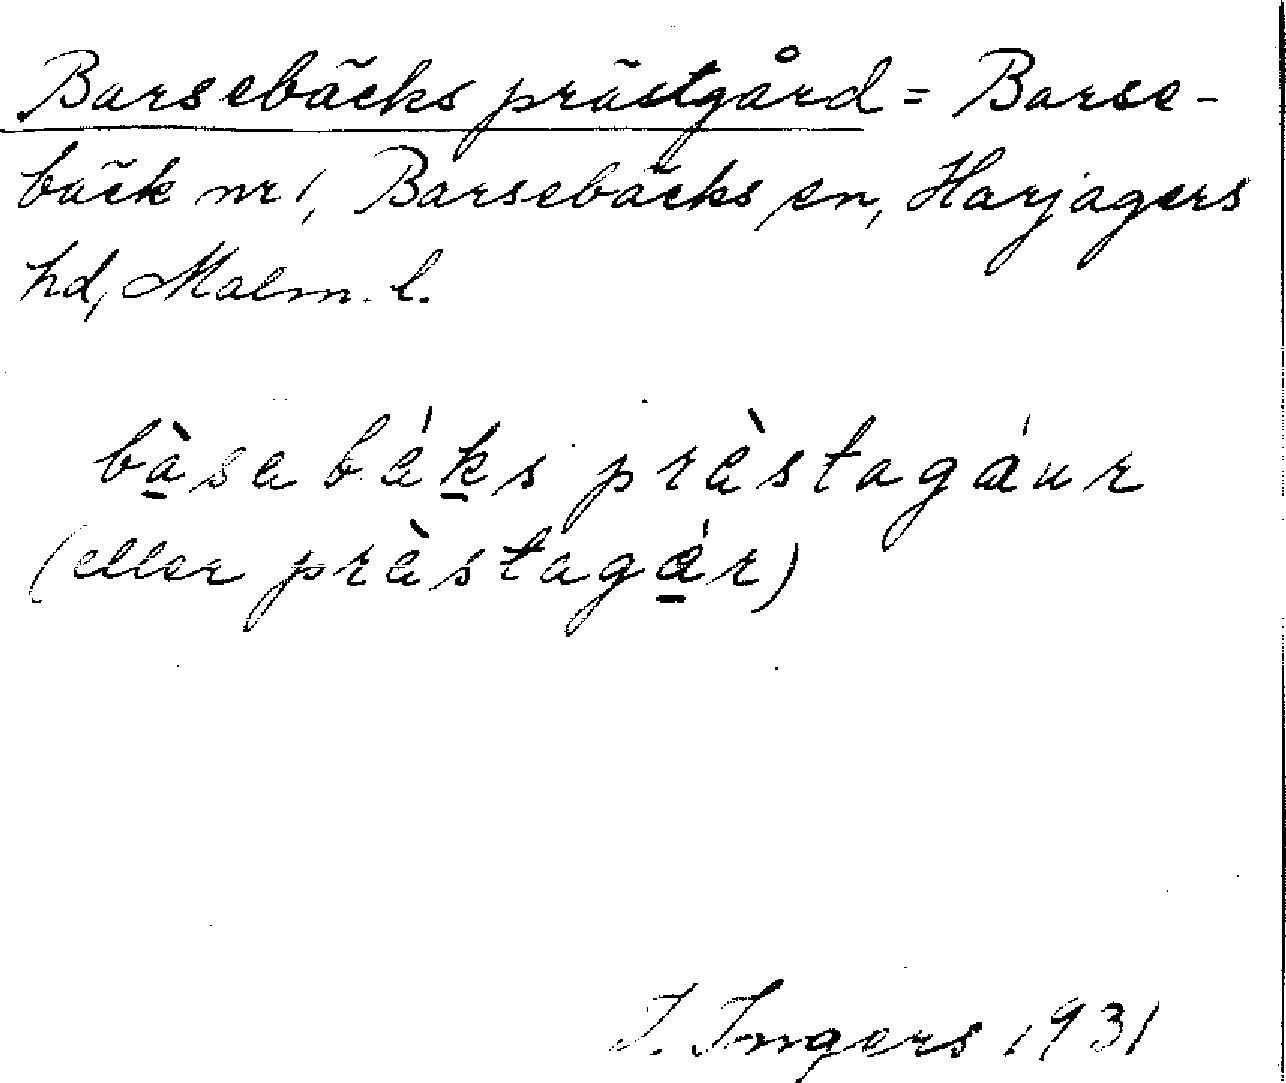 Barsebäcks prästgård = Barse-
bäck nr 1, Barsebäcks sn, Harjagers
hd, Malm. l.
bàsabáks pràstagáur
(eller pràstagár)
I. Ingers 1931